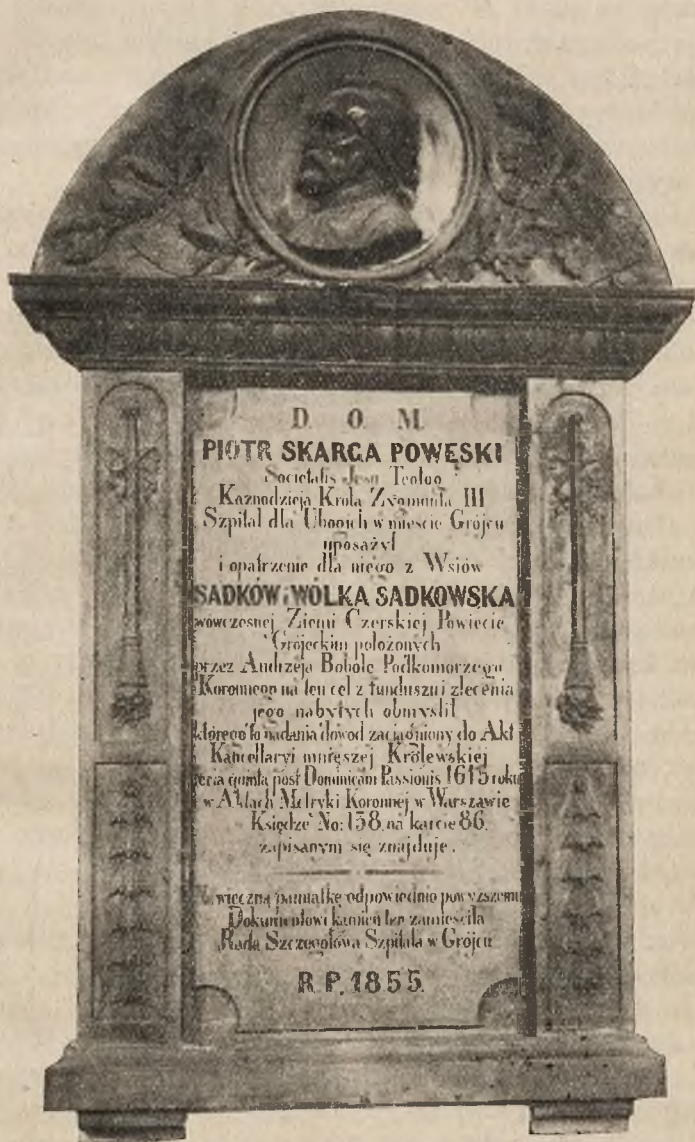 D. O. M.
PIOTR SKARGA POWĘSKI
Societatis Jesu Teolog
Kaznodzieja Króla Zygmunta III
Szpital dla Ubogich w mieście Grójcu
uposażył
i opatrzenie dla niego z Wsiów
SADKÓW i WÓLKA SADKOWSKA
wówczesnej Ziemi Czerskiej Powiecie
Grójeckim położonych
przez Andrzeja Bobolę Podkomorzego
Koronnego na ten cel z funduszu i zlecenia
jego nabytych obmyślił
którego to nadania dowód zaciągniony do Akt
Kancellaryi mniejszej Królewskiej
feria quinta post Dominicam Passionis 1615 roku
w Aktach Metryki Koronnej w Warszawie
Księdze No: 158. na karcie 86.
zapisanym się znajduje.
wieczną pamiątkę odpowiednio powyższemu
Dokumentowi kamień ten zamieściła
Rada Szczegółowa Szpitala w Grójcu
R. P. 1855.